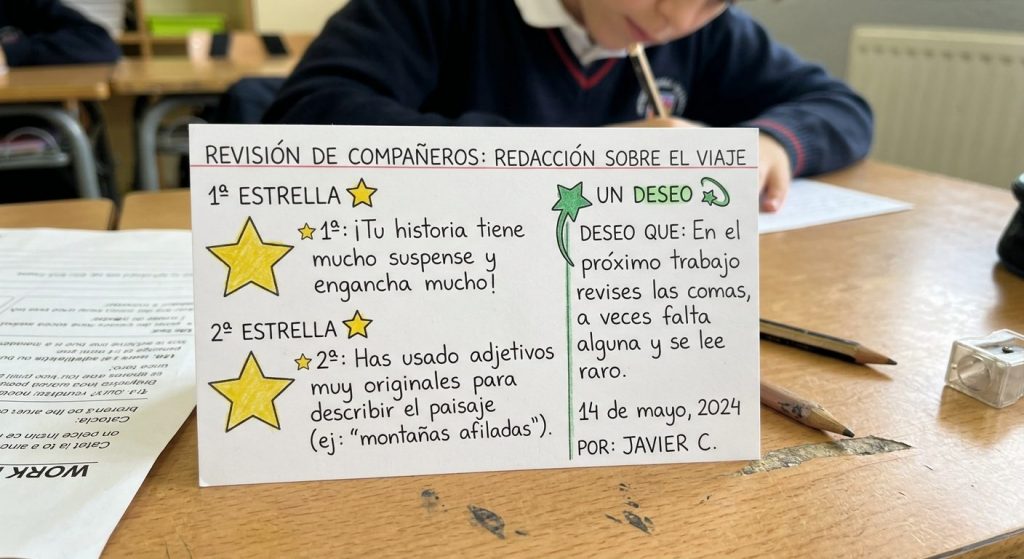 REVISIÓN DE COMPAÑEROS: REDACCIÓN SOBRE EL VIAJE
1ª ESTRELLA
1ª: ¡Tu historia tiene
mucho suspense y
engancha mucho!
2ª ESTRELLA
2ª: Has usado adjetivos
muy originales para
describir el paisaje
(ej: "montañas afiladas").
UN DESEO
DESEO QUE: En el
próximo trabajo
revises las comas,
a veces falta
alguna y se lee
raro.
14 de mayo, 2024
POR: JAVIER C.
WORK